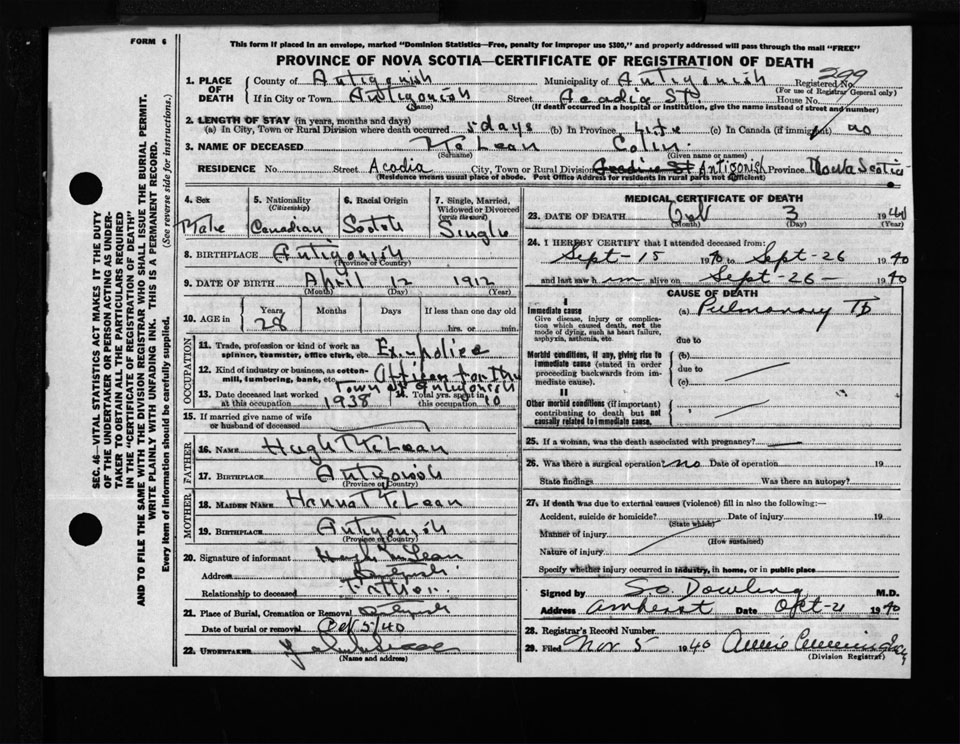 FORM 6
This form if placed in an envelope, marked "Dominion Statistics—Free, penalty for improper use $300," and properly addressed will pass through the mail "FREE"
PROVINCE OF NOVA SCOTIA—CERTIFICATE OF REGISTRATION OF DEATH
1. PLACE OF DEATH
County of Antigonish Municipality of Antigonish Registered No. 299
(For use of Registrar General only)
If in City or Town Antigonish Street Acadia St. House No.
(Name) (If death occurred in a hospital or institution, give the name instead of street and number)
2. LENGTH OF STAY (in years, months and days)
(a) In City, Town or Rural Division where death occurred 5 days (b) In Province Life (c) In Canada (if immigrant) no
3. NAME OF DECEASED McLean Colin
(Surname) (Given name or names)
RESIDENCE No. Street Acadia City, Town or Rural Division Antigonish Province Nova Scotia
(Residence means usual place of abode. Post Office Address for residents in rural parts not sufficient)
4. Sex
Male
5. Nationality
(Citizenship)
Canadian
6. Racial Origin
Scotch
7. Single, Married, Widowed or Divorced
(write the word)
Single
8. BIRTHPLACE Antigonish
(Province or Country)
9. DATE OF BIRTH April 12 1912
(Month) (Day) (Year)
10. AGE in Years Months Days If less than one day old
28 hrs. or min.
OCCUPATION
11. Trade, profession or kind of work as
spinner, teamster, office clerk, etc. Ex-police
12. Kind of industry or business, as cotton-
mill, lumbering, bank, etc. Officer for the
Town of Antigonish
13. Date deceased last worked at this occupation 1938
14. Total yrs. spent in this occupation 10
15. If married give name of wife
or husband of deceased
FATHER
16. NAME Hugh McLean
17. BIRTHPLACE Antigonish
(Province or Country)
MOTHER
18. MAIDEN NAME Hannah McLean
19. BIRTHPLACE Antigonish
(Province or Country)
20. Signature of informant Hugh McLean
Address Antigonish
Relationship to deceased Father
21. Place of Burial, Cremation or Removal Antigonish
Date of burial or removal Oct 5/40
22. UNDERTAKER
(Name and address)
MEDICAL CERTIFICATE OF DEATH
23. DATE OF DEATH Oct 3 1940
(Month) (Day) (Year)
24. I HEREBY CERTIFY that I attended deceased from:
Sept-15 1940 to Sept-26 1940
and last saw him alive on Sept-26- 1940
CAUSE OF DEATH
I
Immediate cause
Give disease, injury, or complication which caused death, not the mode of dying, such as heart failure, asphyxia, asthenia, etc.
(a) Pulmonary TB
due to
Morbid conditions, if any, giving rise to immediate cause (stated in order proceeding backwards from immediate cause).
(b)
due to
(c)
II
Other morbid conditions (if important) contributing to death but not causally related to immediate cause.
25. If a woman, was the death associated with pregnancy?
26. Was there a surgical operation? no Date of operation 19
State findings Was there an autopsy?
27. If death was due to external causes (violence) fill in also the following:—
Accident, suicide or homicide? Date of injury 19
(State which)
Manner of injury
(How sustained)
Nature of injury
Specify whether injury occurred in industry, in home, or in public place
Signed by Dowling M.D.
Address Amherst Date Oct-21 1940
28. Registrar's Record Number
29. Filed Nov 5 1940 Annie
(Division Registrar)
SEC. 46—VITAL STATISTICS ACT MAKES IT THE DUTY
OF THE UNDERTAKER OR PERSON ACTING AS UNDER-
TAKER TO OBTAIN ALL THE PARTICULARS REQUIRED
IN THE "CERTIFICATE OF REGISTRATION OF DEATH"
AND TO FILE THE SAME WITH THE DIVISION REGISTRAR WHO SHALL ISSUE THE BURIAL PERMIT.
WRITE PLAINLY WITH UNFADING INK. THIS IS A PERMANENT RECORD.
Every item of information should be carefully supplied. (See reverse side for instructions.)